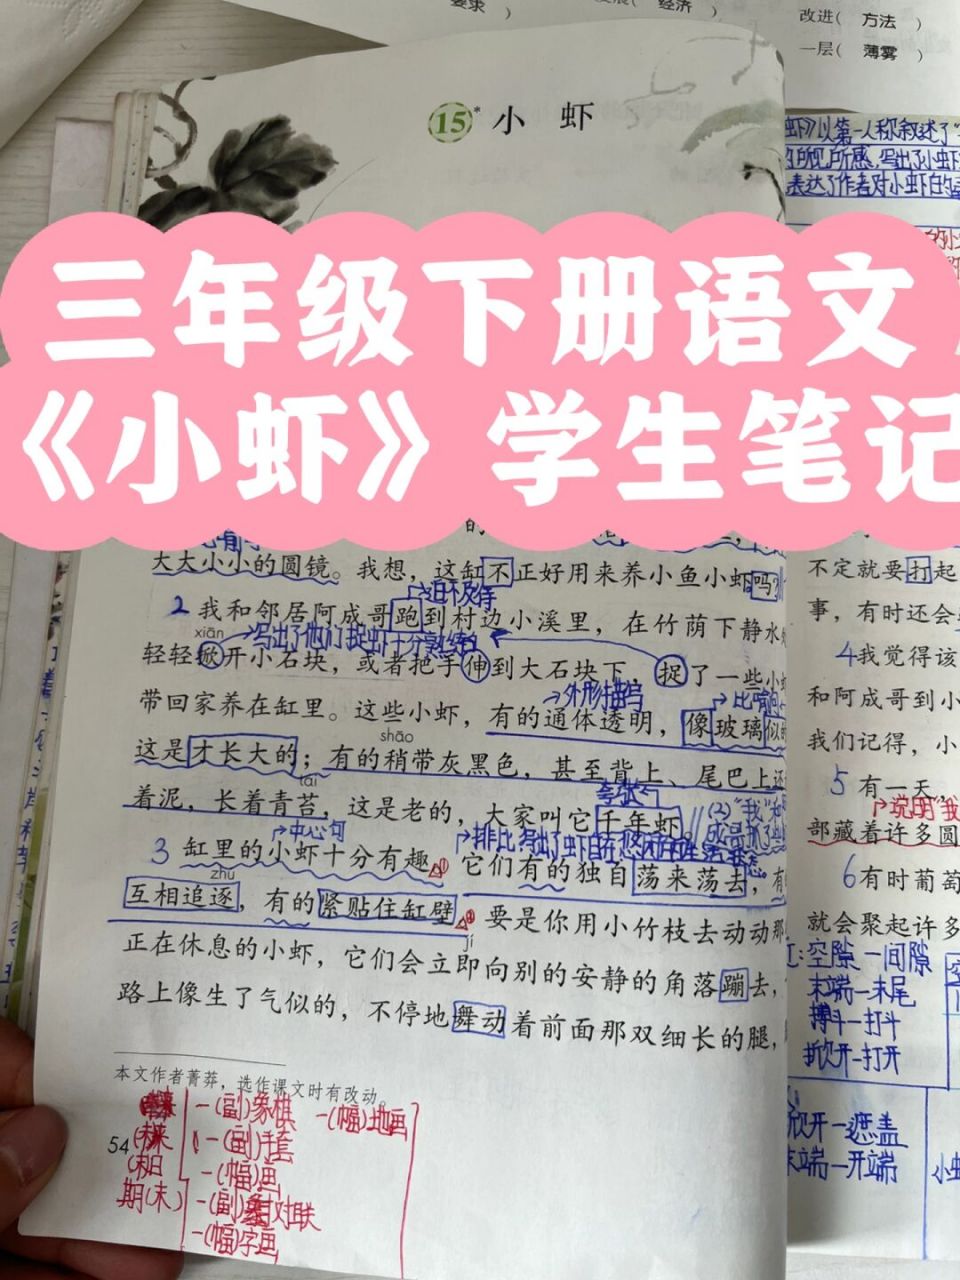 要求 ）
经济 ）
改进（ 方法 ）
一层（ 薄雾 ）
15* 小 虾
虾》以第一人称叙述了
所见所感，写出了小虾
表达了作者对小虾的
三年级下册语文
《小虾》学生笔记
大大小小的圆镜。我想，这缸不正好用来养小鱼小虾吗？
迫不及待
2 我和邻居阿成哥跑到村边小溪里，在竹荫下静水
xiān
写出了他们捉虾十分熟练
轻轻掀开小石块，或者把手伸到大石块下，捉了一些小
外形描写
比喻句
带回家养在缸里。这些小虾，有的通体透明，像玻璃似的
shāo
这是才长大的；有的稍带灰黑色，甚至背上、尾巴上还
tái
着泥，长着青苔，这是老的，大家叫它千年虾。
(2)“我”和
中心句
排比 写出了虾自在悠闲的生活状态。
3 缸里的小虾十分有趣。它们有的独自荡来荡去，有
zhú
互相追逐，有的紧贴住缸壁。要是你用小竹枝去动动那
jí
正在休息的小虾，它们会立即向别的安静的角落蹦去，
路上像生了气似的，不停地舞动着前面那双细长的腿，
本文作者菁莽，选作课文时有改动。
54
期(末)
一(副)象棋 一(幅)地画
一(副)手套
一(幅)画
一(副)对联
一(幅)字画
不定就要打起
事，有时还会
4 我觉得该
和阿成哥到小
我们记得，小
5 有一天
说明“我
部藏着许多圆
6 有时葡萄
就会聚起许多
空隙—间隙
末端—末尾
搏斗—打斗
掀开—打开
掀开—遮盖
末端—开端
小虾